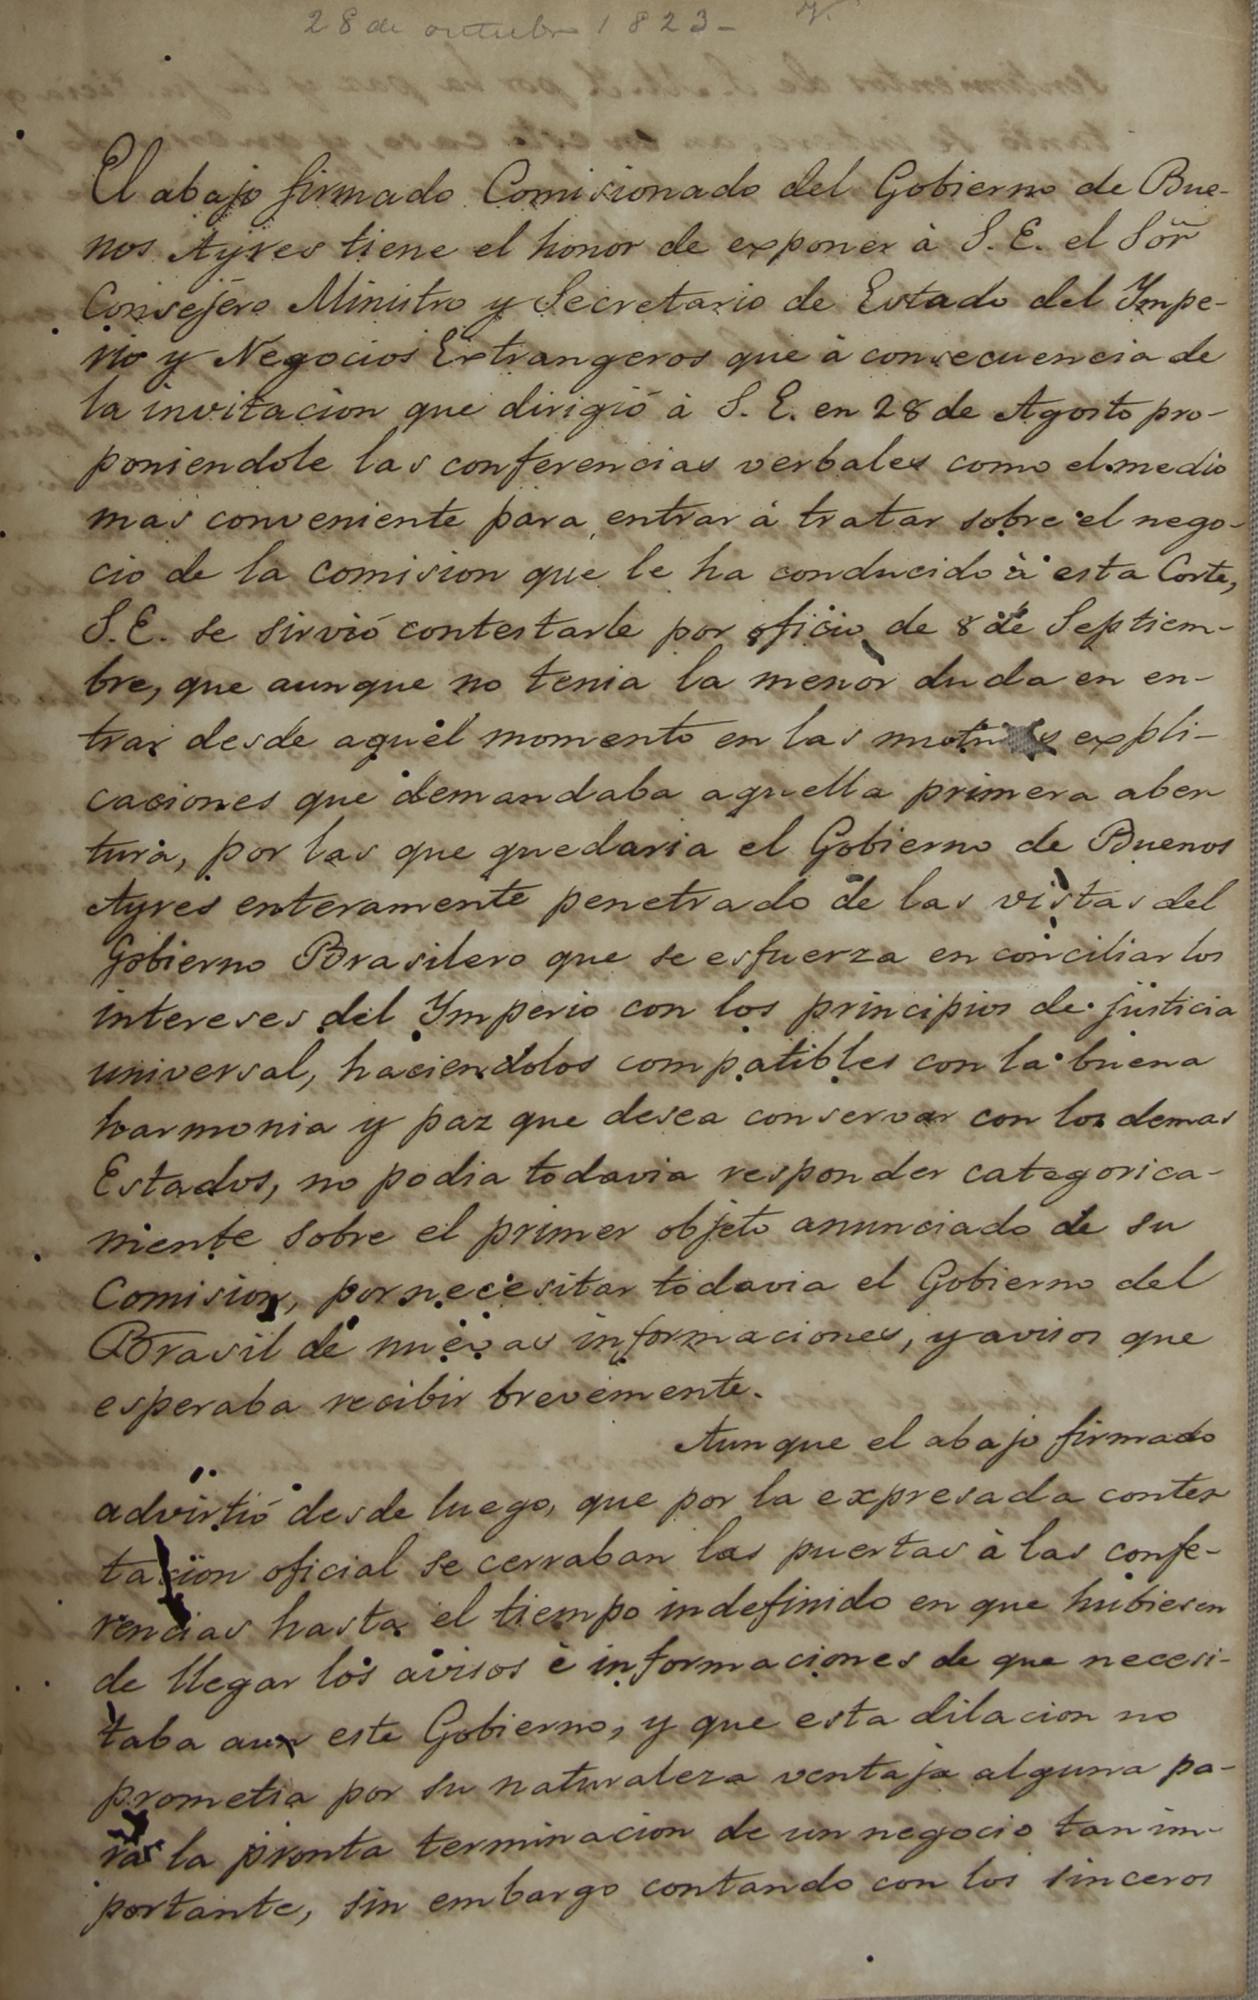 28 de octubre 1823 - V.
El abajo firmado Comisionado del Gobierno de Bue-
nos Ayres tiene el honor de exponer à S. E. el Sõr
Consejero Ministro y Secretario de Estado del Ympe-
rio y Negocios Extrangeros que à consecuencia de
la invitacion que dirigió à S. E. en 28 de Agosto pro-
poniendole las conferencias verbales como el medio
mas conveniente para entrar à tratar sobre el nego-
cio de la comision que le ha conducido à esta Corte,
S. E. se sirvió contestarle por oficio de 8 de Septiem-
bre, que aunque no tenia la menor duda en en-
trar desde aquel momento en las mutuas expli-
caciones que demandaba aquella primera aber
tura, por las que quedaria el Gobierno de Buenos
Ayres enteramente penetrado de las vistas del
Gobierno Brasilero que se esfuerza en conciliar los
intereses del Ymperio con los principios de justicia
universal, haciendolos compatibles con la buena
harmonia y paz que desea conservar con los demas
Estados, no podia todavia responder categorica-
mente sobre el primer objeto anunciado de su
Comision, por necesitar todavia el Gobierno del
Brasil de nuevas informaciones, y avisos que
esperaba recibir brevemente.
Aunque el abajo firmado
advirtió desde luego, que por la expresada contes
tacion oficial se cerraban las puertas à las confe-
rencias hasta el tiempo indefinido en que hubiesen
de llegar los avisos è informaciones de que necesi-
taba aun este Gobierno, y que esta dilacion no
prometia por su naturaleza ventaja alguna pa-
ra la pronta terminacion de un negocio tan im-
portante, sin embargo contando con los sinceros